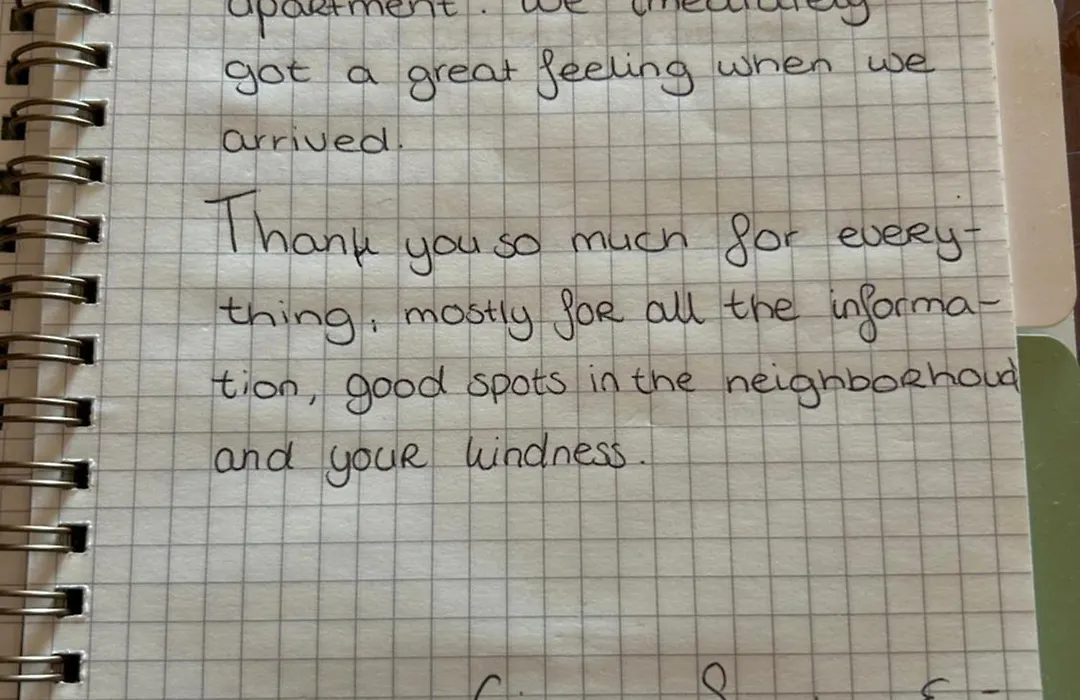 apartment. We imediately
got a great feeling when we
arrived.
Thank you so much for every-
thing, mostly for all the informa-
tion, good spots in the neighborhoud
and your kindness.